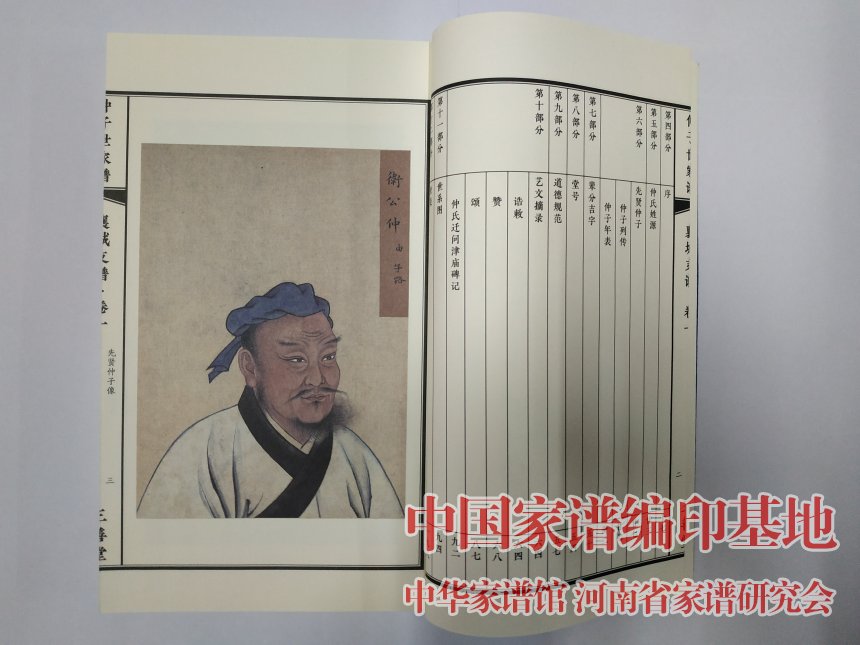 仲子世家谱 襄城支谱 卷一 二
第四部分 序
第五部分 仲氏姓源
第六部分 先贤仲子
仲子列传
仲子年表
第七部分 辈分吉字
第八部分 堂号
第九部分 道德规范
第十部分 艺文摘录
诰敕
赞
颂
仲氏迁问津庙碑记 九二
第十一部分 世系图 九四
衛公仲由 子路
仲子世家谱 襄城支谱·卷一 先贤仲子像 三 三善堂
中国家谱编印基地
中华家谱馆 河南省家谱研究会